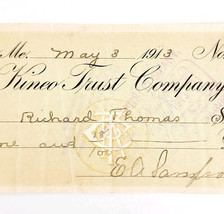 Me. May 3 1913 No.
Kineo Trust Company
Richard Thomas $
ne and
E A